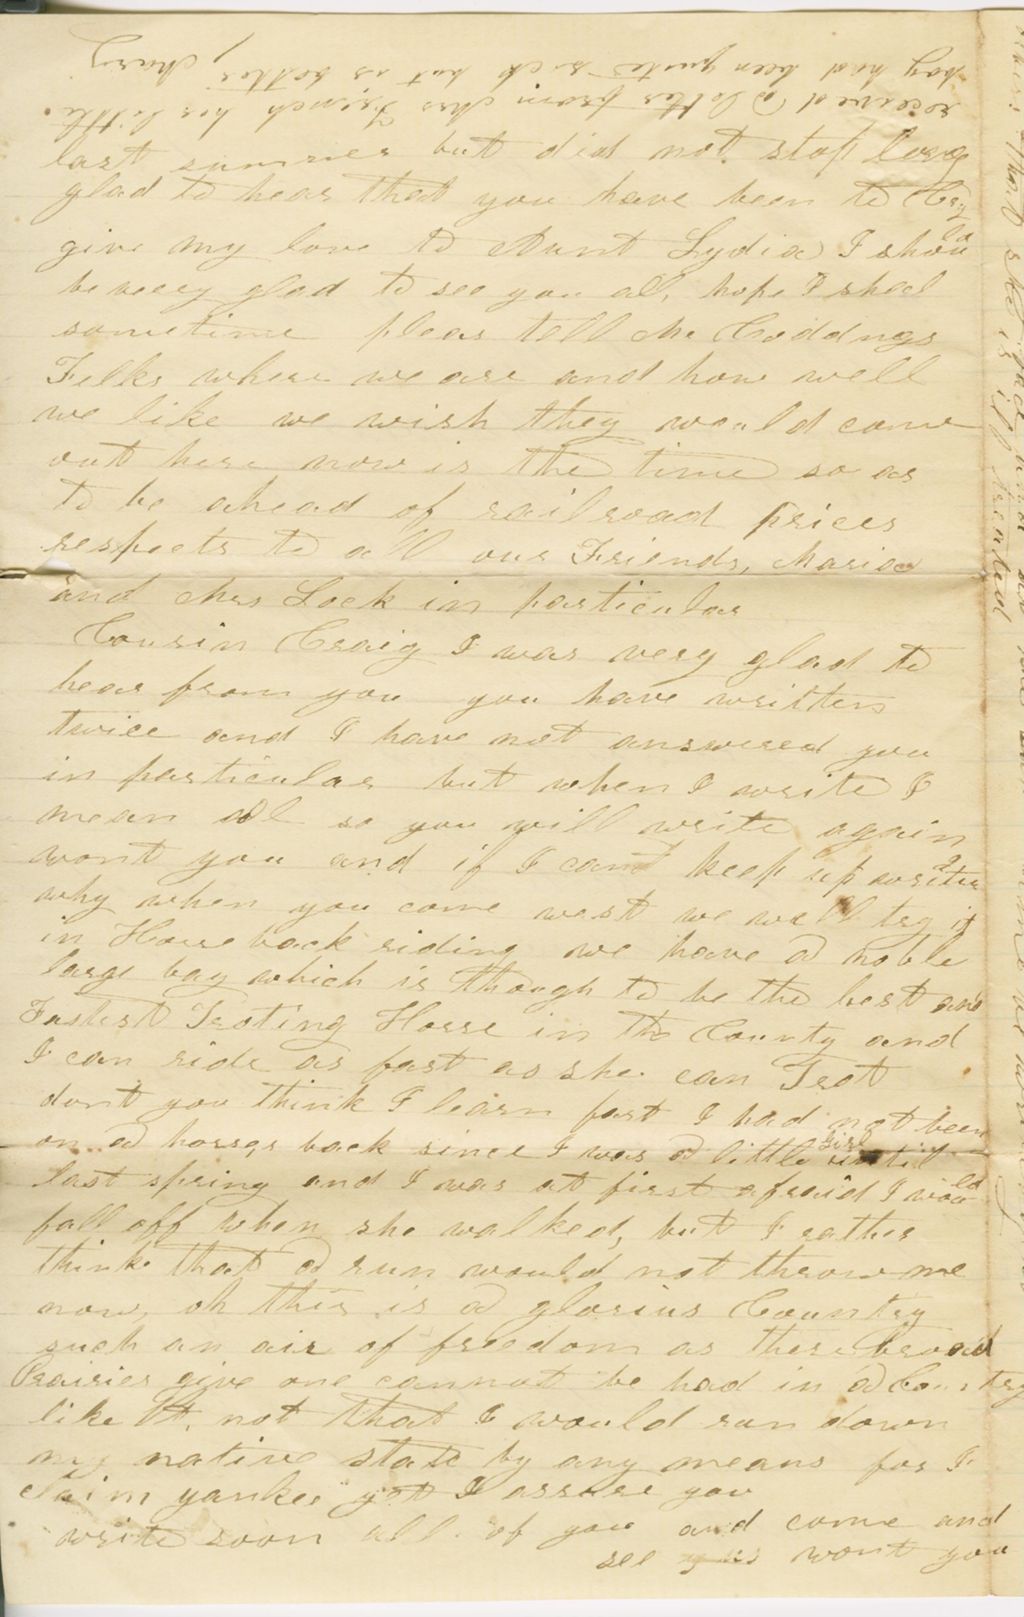 received a letter from Mrs French her little
boy had been quite sick but is better, Mary
last summer but did not stop long
glad to hear that you have been to
give my love to Aunt Lydia I should
be veery glad to see you all, hope I shal
sometime pleas tell Mr Coddngs
Folks where we are and how well
we like we wish they would come
out here now is the time so as
to be ahead of railroad prices
respects to all our Friends, Maria
and Mrs Lock in particular
Cousin Craig I was very glad to
hear from you you have written
twice and I have not answered you
in particular but when I write I
mean all so you will write again
wont you and if I cant keep up writin
why when you come west we will try it
in Horse back riding we have a noble
large bay which is though to be the best and
Fastest Troting Horse in the County and
I can ride as fast as she can Trot
dont you think I learn fast I had not been
on a horses back since I was a little girl until
last spring and I was at first afraid I would
fall off when she walked, but I rather
think that a run would not throw me
now, oh this is a glorius Country
such an air of freedom as these broad
Prairies give one cannot be had in a Country
like Vt, not that I would run down
my native state by any means for I
claim yankee yet I assure you
write soon all of you and come and
see us wont you